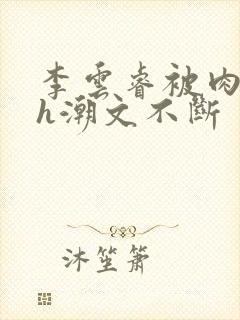 李雲睿被肉
h潮文不斷
沐笙簫